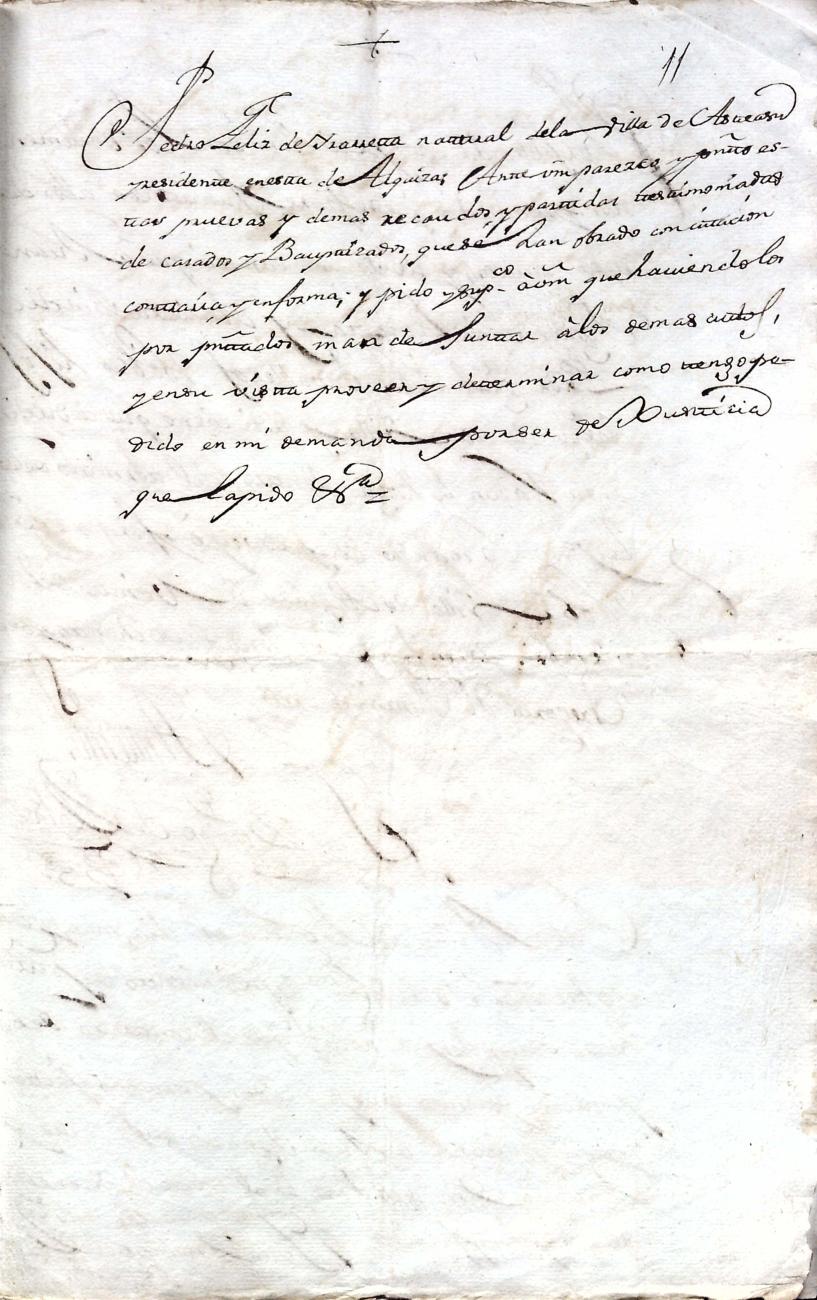 +
11
Pedro Feliz de Yrarreta natural dela Villa de Asteasu
y residente enesta de Alquiza; Ante vm parezco, y pnto es-
tas pruevas y demas recaudos y partidas testimoniadas
de casados y Bauptizados, quese han obrado con citacion
contraria y enforma; y pido y supco à vm que haviendolos
por pntados mande Juntar àlos demas autos,
y ensu vista proveer y determinar como tengo pe-
dido en mi demanda por ser de Justicia
que lapido &a =